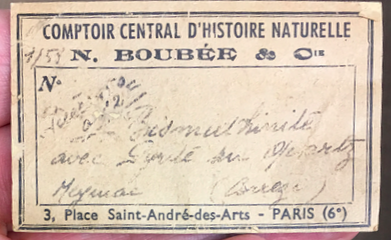 COMPTOIR CENTRAL D'HISTOIRE NATURELLE
N. BOUBÉE & Cie
No
Bismuthinite
avec Pyrite sur Quartz
Meymac (Corrèze)
3, Place Saint-André-des-Arts - PARIS (6e)